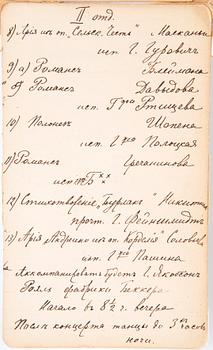 II отд.
8) Ария из оп. „Сельск. Честь" Масканьи
исп. Г. Гуревич
9) а) Романс Блеймана
б) Романс Давыдова
исп. Гжа Ртищева
10) Полонез Шопена
исп. Гжа Полоцкая
11) Романс Гречанинова
исп. Б xx
12) Стихотворение „Бурлак" Никитина
прочт. Г. Фейнкмидт
13) Ария Андрино из оп. Корделия" Соловьева
исп. Гжа Пашина
Аккомпанировать будет Г. Якобсон
Рояль фабрики Беккера
Начало в 8½ г. вечера
После концерта танцы до 3 часов
ночи.